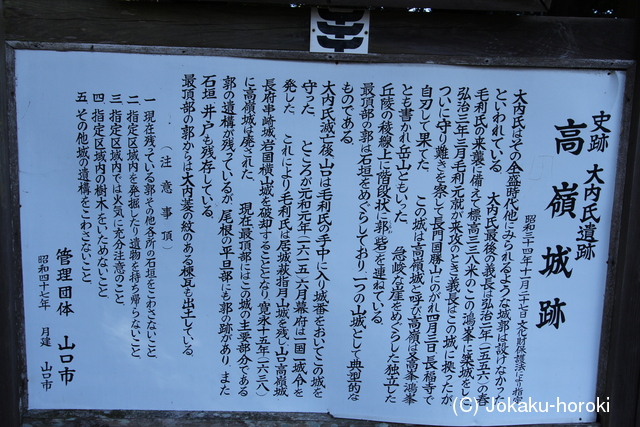 史跡 大内氏遺跡
高嶺城跡
昭和三十四年十一月二十七日文化財保護法により指定
大内氏はその全盛時代他にみられるような城郭は設けなかった
といわれている。 大内氏最後の義長は弘治二年(一五五六)の春
毛利氏の来襲に備えて標高三三八米のこの鴻峯に築城をし
弘治三年三月毛利元就が来攻のとき義長はこの城に拠ったが
ついに守り難きを察して長門国勝山にのがれ四月三日長福寺で
自刃して果てた。 この城は高嶺城と呼び高嶺は又高峯 鴻峯
とも書かれ岳山ともいった。 急峻な岩崖をめぐらした独立した
丘陵の稜線上に階段状に郭(砦)を連ねている。
最頂部の郭は石垣をめぐらしており一つの山城として典型的な
ものである。
大内氏滅亡後、山口は毛利氏の手中に入り城番をおいてこの城を
守った。 ところが元和元年(一六一五)六月幕府は一国一城令を
発した。 これにより毛利氏は居城萩指月山城を残し山口高嶺城
長府串崎城 岩国横山城を破却することとなり、寛永十五年(一六三八)
に高嶺城は廃された。 現在最頂部にはこの城の主要部分である
郭の遺構が残っているが、尾根の平旦部にも郭の跡があり、また
石垣・井戸も残存している。
最頂部の郭からは大内菱の紋のある棟瓦も出土している。
(注意事項)
一 現在残っている郭その他各所の石垣をこわさないこと
二 指定区域内を発掘したり遺物を持ち帰らないこと
三 指定区域内では火気に充分注意のこと
四 指定区域内の樹木をいためないこと
五 その他城の遺構をこわさないこと
管理団体 山口市
昭和四十七年 月建 山口市
(C) Jokaku-horoki